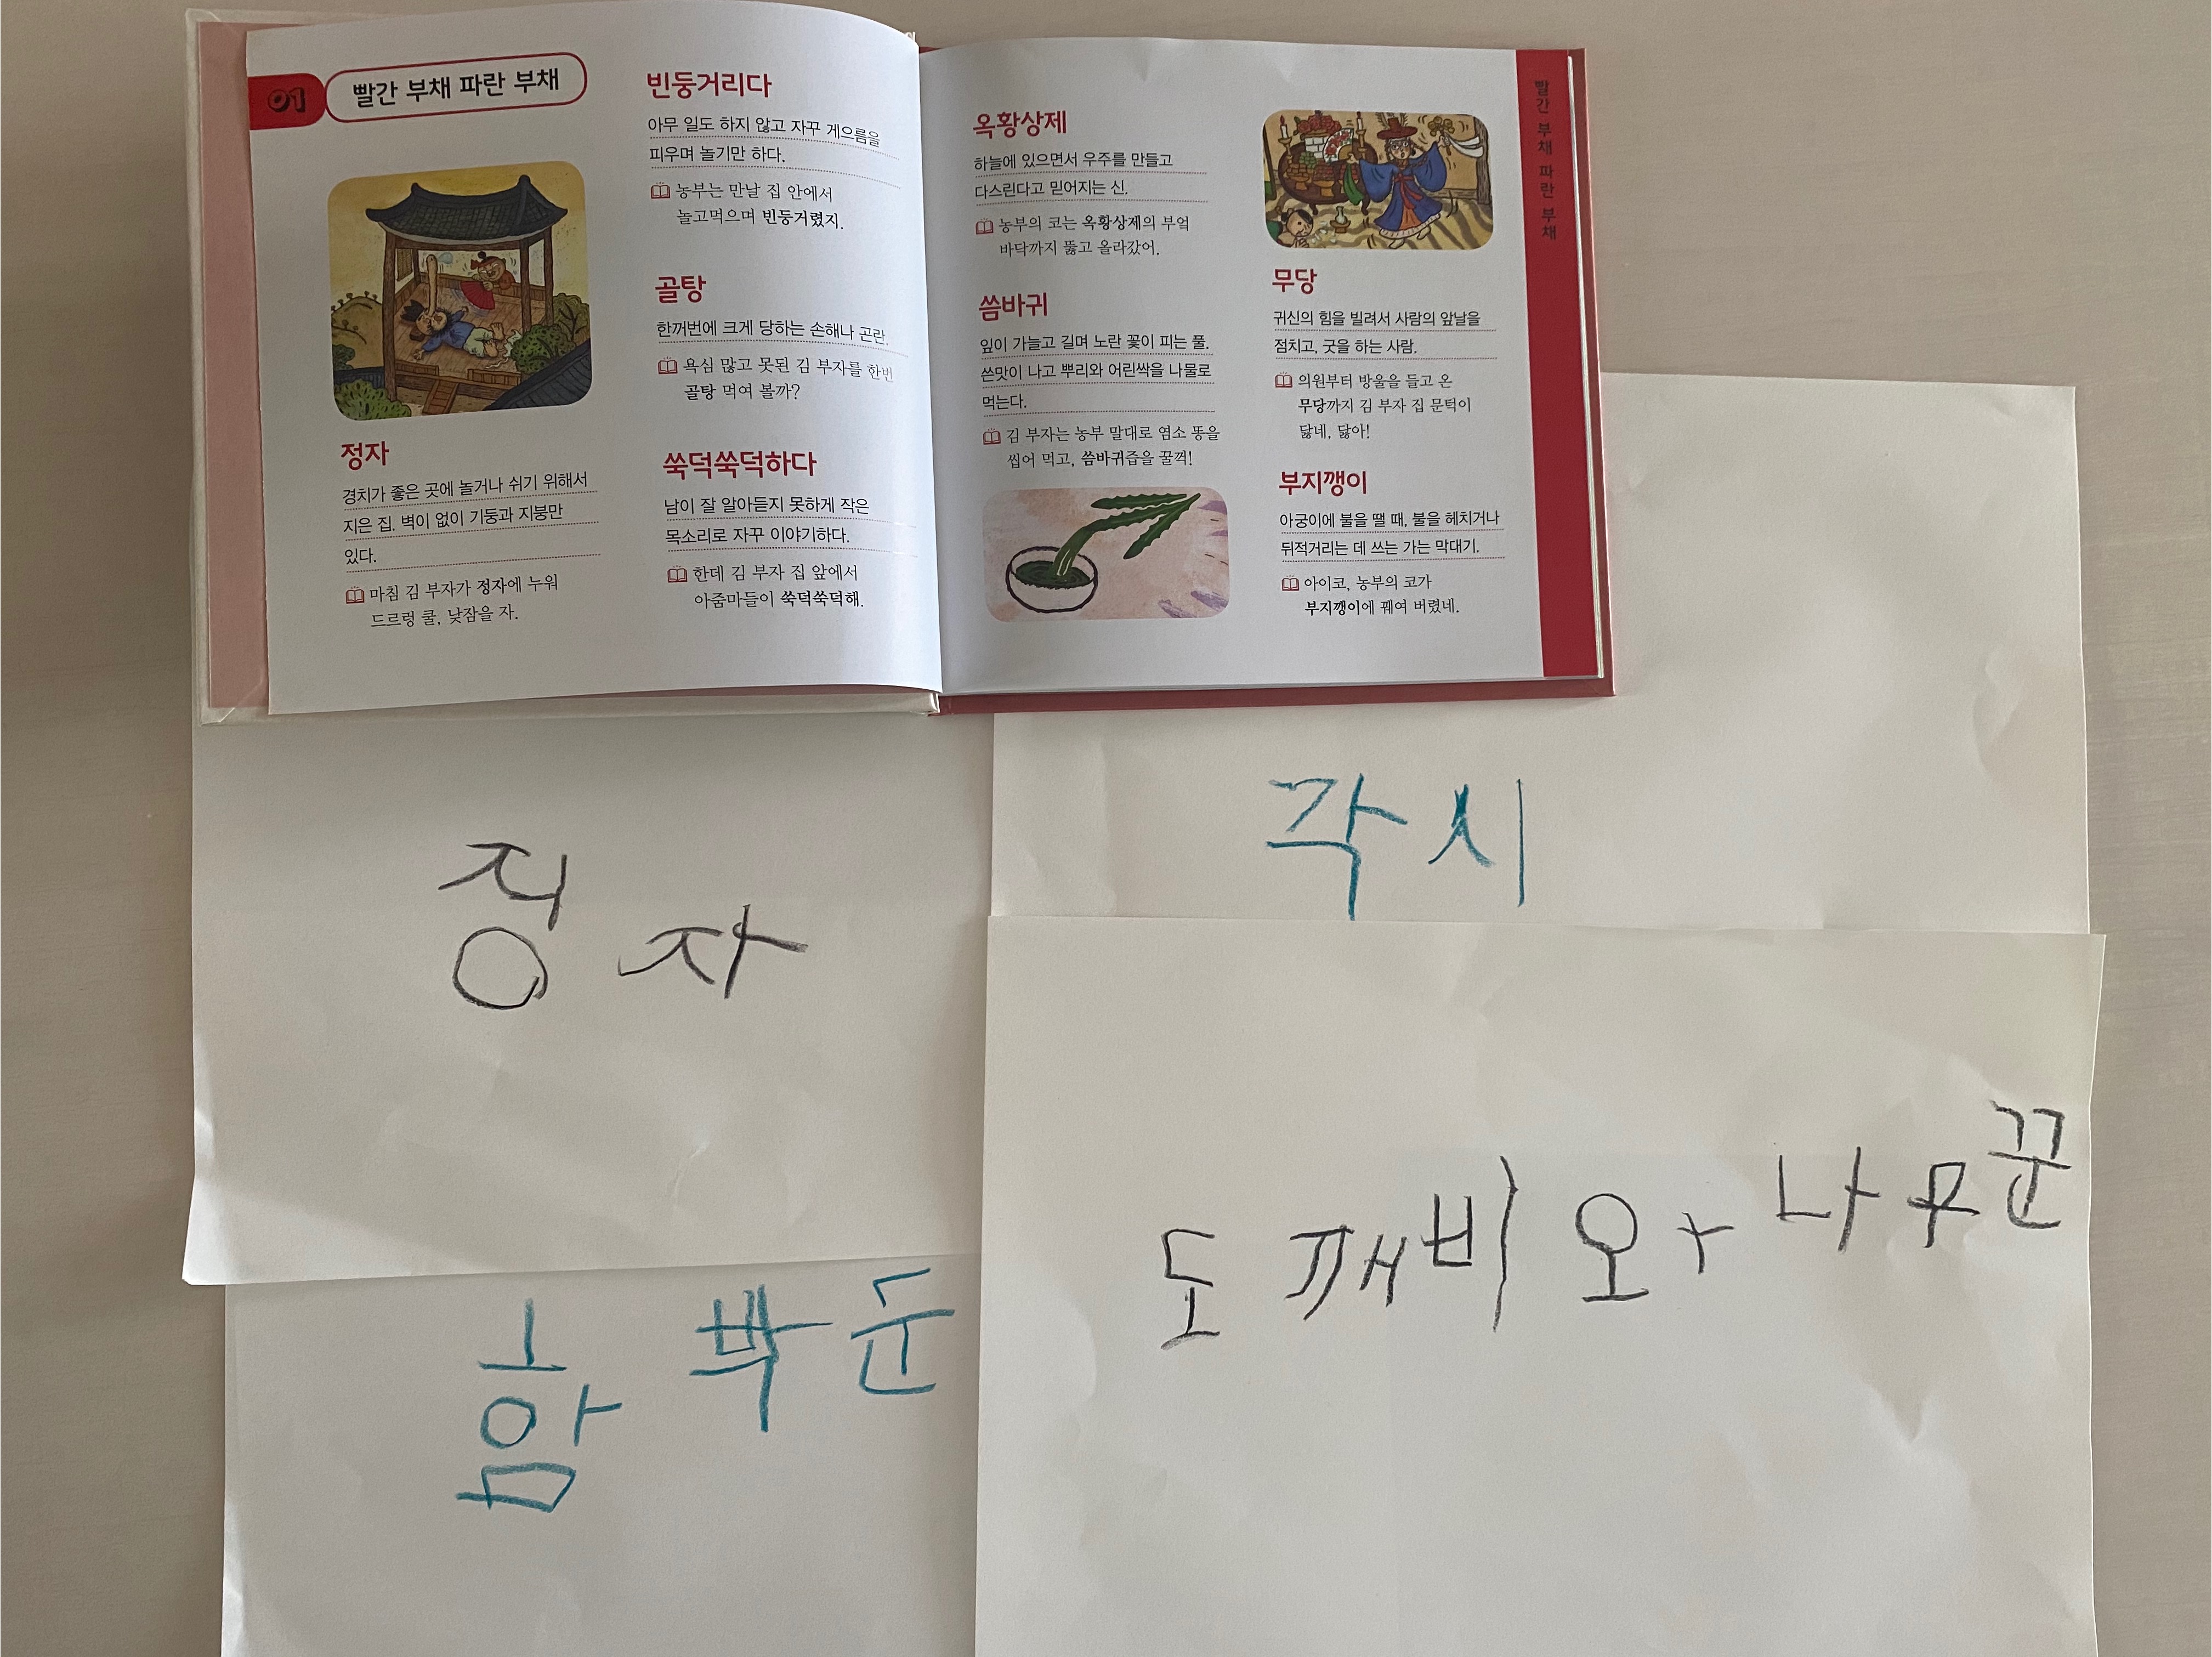 01 빨간 부채 파란 부채
정자
경치가 좋은 곳에 놀거나 쉬기 위해서
지은 집. 벽이 없이 기둥과 지붕만
있다.
마침 김 부자가 정자에 누워
드르렁 쿨, 낮잠을 자.
빈둥거리다
아무 일도 하지 않고 자꾸 게으름을
피우며 놀기만 하다.
농부는 만날 집 안에서
놀고먹으며 빈둥거렸지.
골탕
한꺼번에 크게 당하는 손해나 곤란.
욕심 많고 못된 김 부자를 한번
골탕 먹여 볼까?
쑥덕쑥덕하다
남이 잘 알아듣지 못하게 작은
목소리로 자꾸 이야기하다.
한데 김 부자 집 앞에서
아줌마들이 쑥덕쑥덕해.
옥황상제
하늘에 있으면서 우주를 만들고
다스린다고 믿어지는 신.
농부의 코는 옥황상제의 부엌
바닥까지 뚫고 올라갔어.
씀바귀
잎이 가늘고 길며 노란 꽃이 피는 풀.
쓴맛이 나고 뿌리와 어린싹을 나물로
먹는다.
김 부자는 농부 말대로 염소 똥을
씹어 먹고, 씀바귀즙을 꿀꺽!
무당
귀신의 힘을 빌려서 사람의 앞날을
점치고, 굿을 하는 사람.
의원부터 방울을 들고 온
무당까지 김 부자 집 문턱이
닳네, 닳아!
부지깽이
아궁이에 불을 땔 때, 불을 헤치거나
뒤적거리는 데 쓰는 가는 막대기.
아이코, 농부의 코가
부지깽이에 꿰여 버렸네.
빨간 부채 파란 부채
각시
정자
도깨비와 나무꾼
함박눈